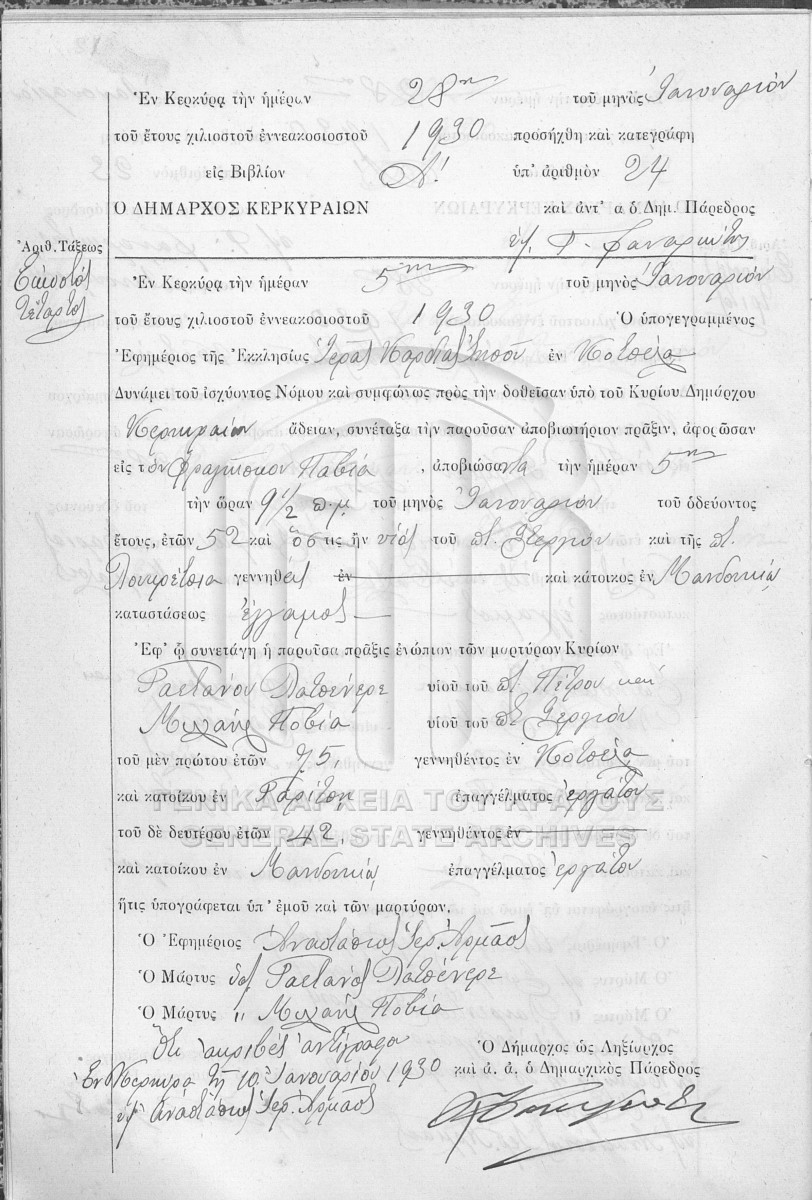 Ἐν Κερκύρᾳ τὴν ἡμέραν 28ην τοῦ μηνὸς Ἰανουαρίου
τοῦ ἔτους χιλιοστοῦ ἐννεακοσιοστοῦ 1930 προσήχθη καὶ κατεγράφη
εἰς Βιβλίον Α! ὑπ' ἀριθμὸν 24
Ὁ ΔΗΜΑΡΧΟΣ ΚΕΡΚΥΡΑΙΩΝ καὶ ἀντ' α ὁ Δημ. Πάρεδρος
Ἀριθ. Τάξεως
Εἰκοστὸς
Τέταρτος
Ἐν Κερκύρᾳ τὴν ἡμέραν 5ην τοῦ μηνὸς Ἰανουαρίου
τοῦ ἔτους χιλιοστοῦ ἐννεακοσιοστοῦ 1930 Ὁ ὑπογεγραμμένος
Ἐφημέριος τῆς Ἐκκλησίας Ἱερᾶς Καρδίας Ἰησοῦ ἐν Κοτσέλα
Δυνάμει τοῦ ἰσχύοντος Νόμου καὶ συμφώνως πρὸς τὴν δοθεῖσαν ὑπὸ τοῦ Κυρίου Δημάρχου
Κερκυραίων ἄδειαν, συνέταξα τὴν παροῦσαν ἀποβιωτήριον πρᾶξιν, ἀφορῶσαν
εἰς τὸν Φραγκίσκον Παβία, ἀποβιώσαντα τὴν ἡμέραν 5ην
τὴν ὥραν 9 1/2 π.μ. τοῦ μηνὸς Ἰανουαρίου τοῦ ὁδεύοντος
ἔτους, ἐτῶν 52 καὶ ὅστις ἦν υἱὸς τοῦ π. Σεργίου καὶ τῆς π.
Λουκρέτσια γεννηθεὶς ἐν καὶ κάτοικος ἐν Μανδουκίῳ
καταστάσεως ἔγγαμος
Ἐφ' ᾧ συνετάγη ἡ παροῦσα πρᾶξις ἐνώπιον τῶν μαρτύρων Κυρίων
Γαετάνου Λατσένερε υἱοῦ τοῦ π. Πέτρου καὶ
Μιχαὴλ Παβία υἱοῦ τοῦ π. Σεργίου
τοῦ μὲν πρώτου ἐτῶν 75, γεννηθέντος ἐν Κοτσέλα
καὶ κατοίκου ἐν Γαρίτσῃ ἐπαγγέλματος ἐργάτου
ΓΕΝΙΚΑ ΑΡΧΕΙΑ ΤΟΥ ΚΡΑΤΟΥΣ
τοῦ δὲ δευτέρου ἐτῶν 42, γεννηθέντος ἐν
GENERAL STATE ARCHIVES
καὶ κατοίκου ἐν Μανδουκίῳ ἐπαγγέλματος ἐργάτου
ἥτις ὑπογράφεται ὑπ' ἐμοῦ καὶ τῶν μαρτύρων.
Ὁ Ἐφημέριος Ἀναστάσιος Ἱερ. Ἀρμᾶος
Ὁ Μάρτυς ὑπ. Γαετάνος Λατσένερε
Ὁ Μάρτυς " Μιχαὴλ Παβία
Ὅτι ἀκριβὲς ἀντίγραφο
Ἐν Κερκύρᾳ τῇ 10 Ἰανουαρίου 1930
ὑπ. Ἀναστάσιος Ἱερ. Ἀρμᾶος
Ὁ Δήμαρχος ὡς Ληξίαρχος
καὶ ἀ. ἀ. ὁ Δημαρχικὸς Πάρεδρος